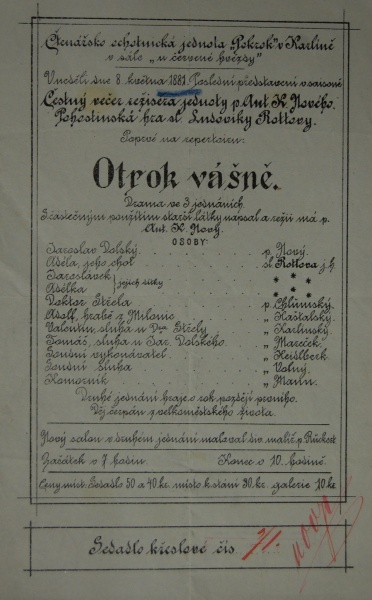 Čtenářsko ochotnická jednota „Pokrok" v Karlíně
v sále „u červené hvězdy"
V neděli dne 8. května 1881. Poslední představení v saisoně
Čestný večer režiséra jednoty p. Ant. K. Nového.
Pohostinská hra sl. Ludoviky Rottovy.
Poprvé na repertoiru:
Otrok vášně.
Drama ve 3 jednáních.
S částečným použitím starší látky napsal a režii má p.
Ant. K. Nový.
OSOBY:
Jaroslav Dolský, p. Nový.
Adéla, jeho choť sl. Rottova j. h.
Jaroslávek } jejich dítky * * *
Adélka * * *
Doktor Střela p. Chlumský.
Adolf, hrabě z Milonic „ Kašťalský.
Valentin, sluha u Dra Střely „ Karlinský.
Tomáš, sluha u Jar. Dolského. „ Mareček.
Soudní vykonávatel „ Heidlberk.
Soudní sluha „ Volný.
Komorník „ Mann.
Druhé jednání hraje o rok později prvního.
Děj čerpán z velkoměstského života.
Nový salon v druhém jednání maloval div. malíř p. Rückert
Začátek v 7 hodin. Konec o 10. hodině.
Ceny míst: Sedadlo 50 a 40 kr. místo k stání 30 kr. galerie 10 kr.
Sedadlo křeslové čís.